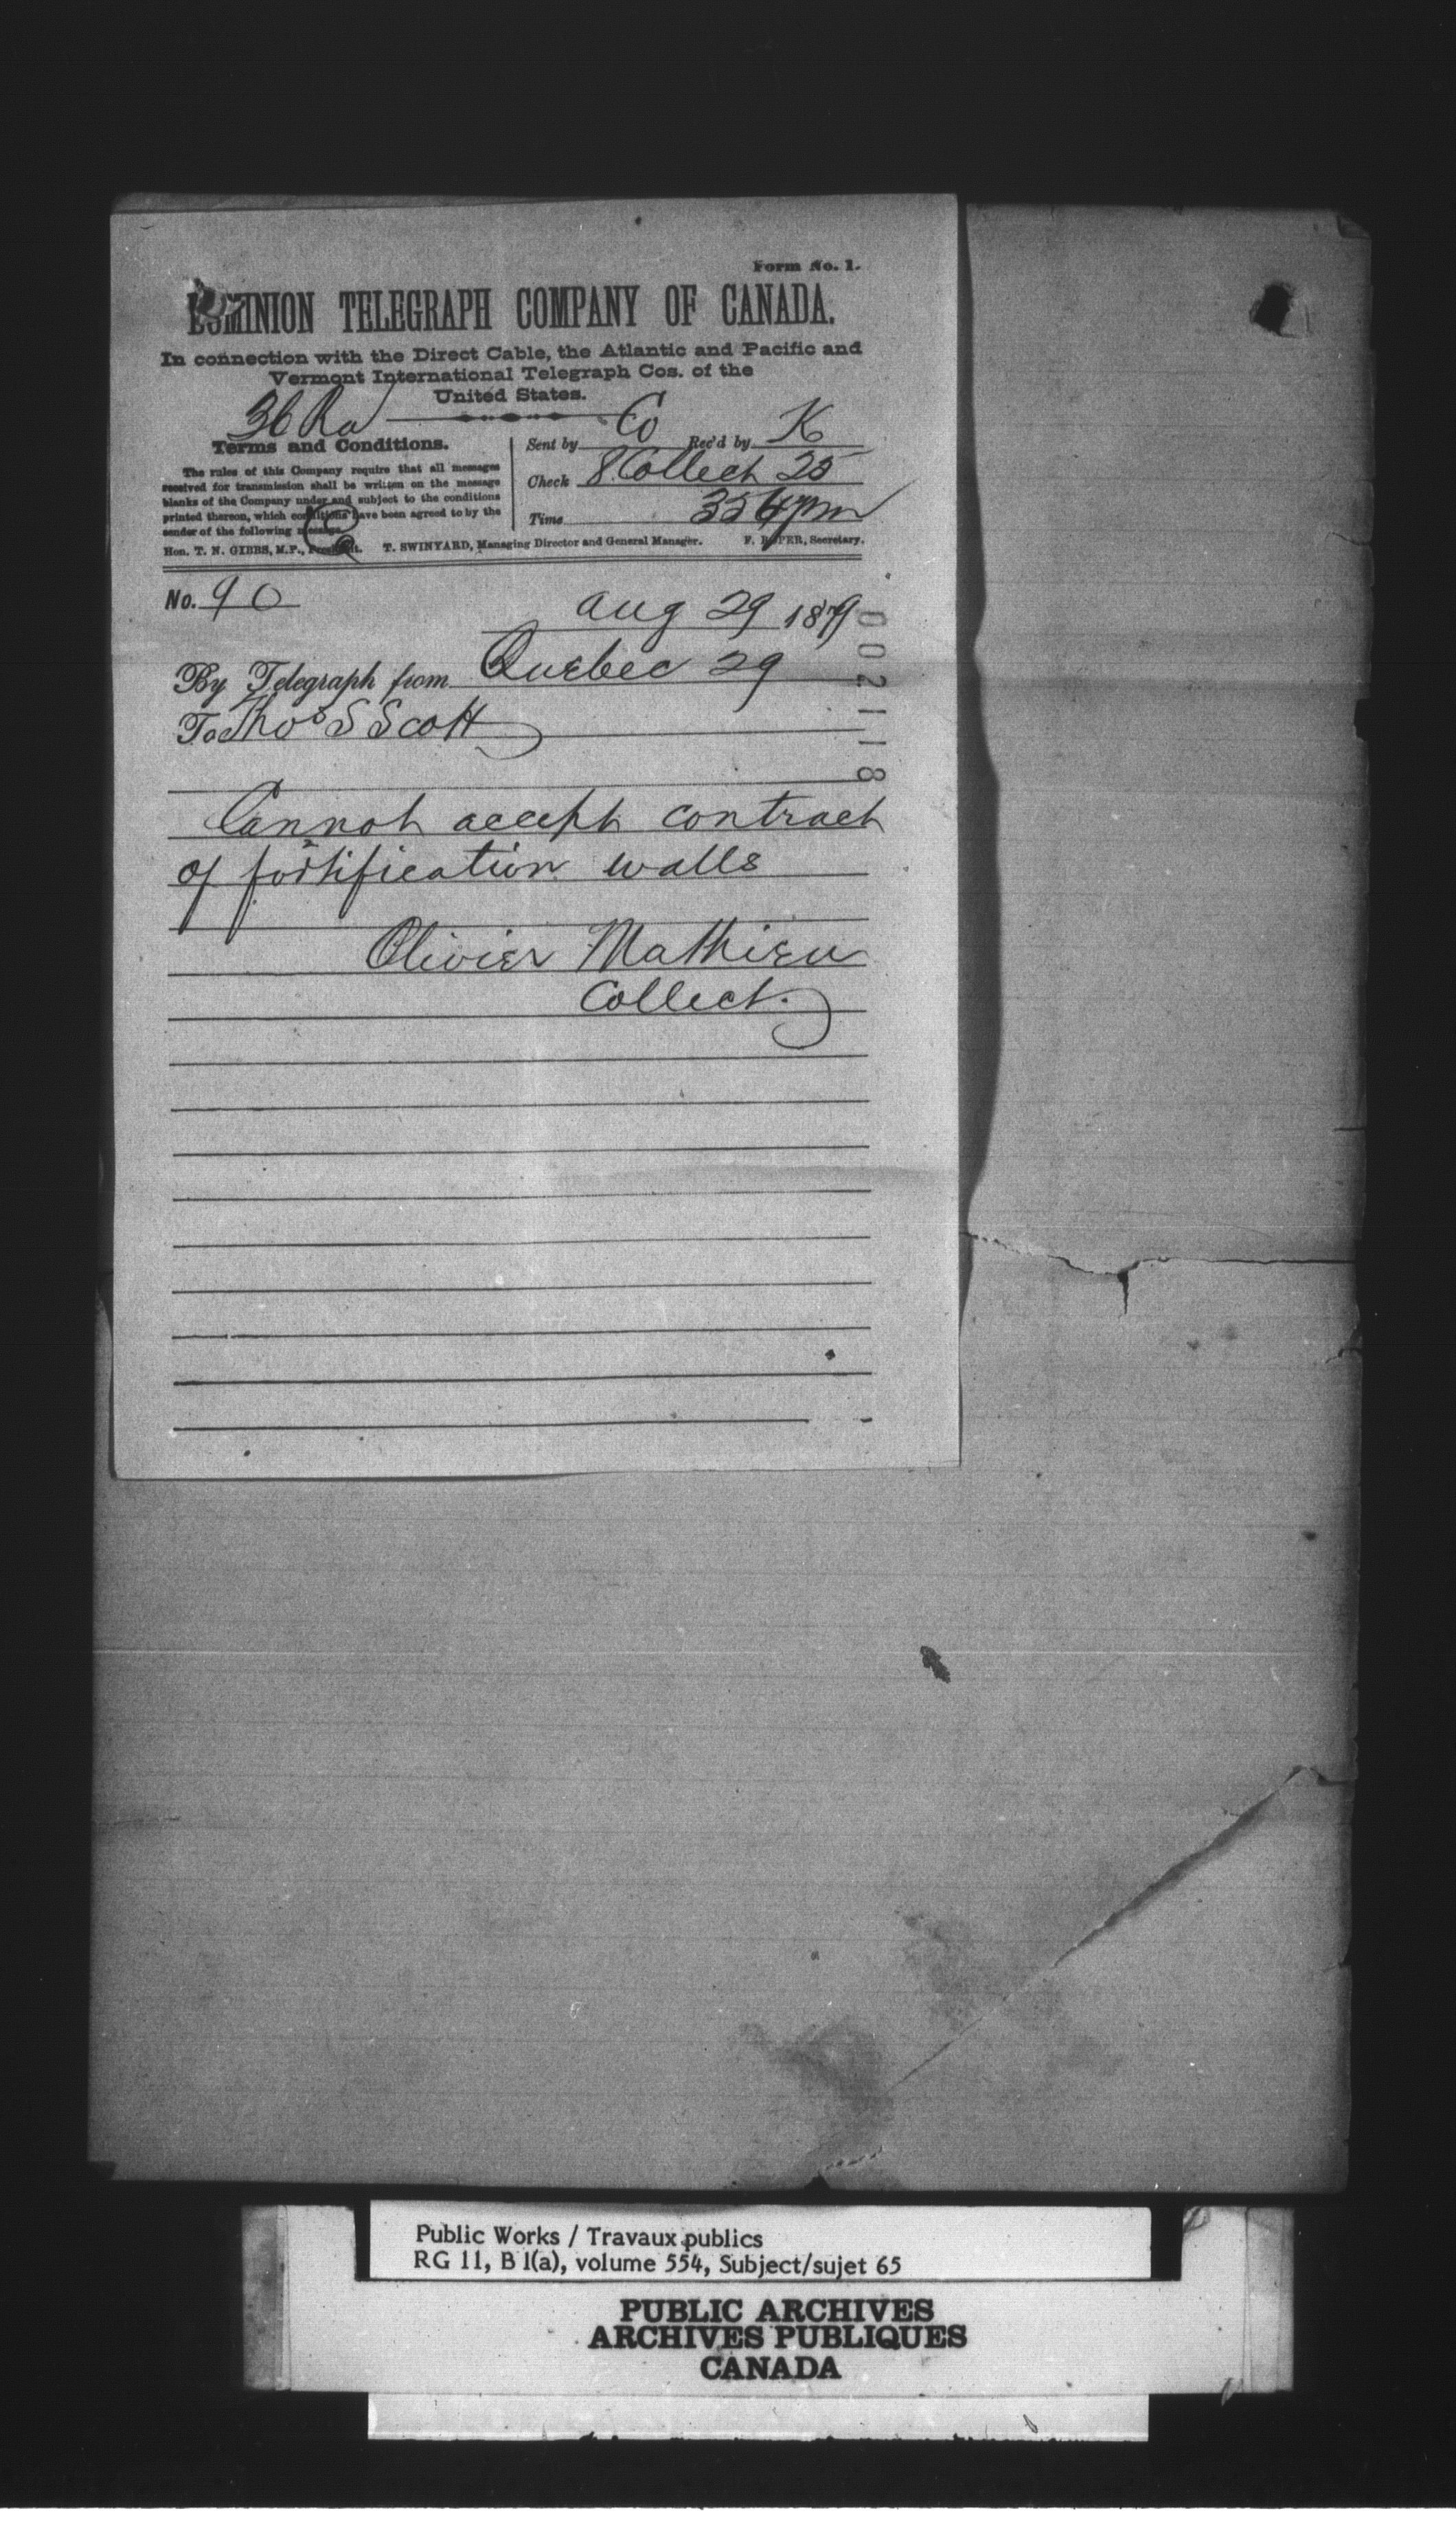 Form No. 1.
DOMINION TELEGRAPH COMPANY OF CANADA.
In connection with the Direct Cable, the Atlantic and Pacific and
Vermont International Telegraph Cos. of the
United States.
36 Ra
Terms and Conditions.
The rules of this Company require that all messages
received for transmission shall be written on the message
blanks of the Company under and subject to the conditions
printed thereon, which conditions have been agreed to by the
sender of the following message.
Sent by Co Rec'd by K
Check 8 Collect 25
Time 354pm
Hon. T. N. GIBBS, M.P., President. T. SWINYARD, Managing Director and General Manager. F. ROPER, Secretary.
No. 90
Aug 29 1879
By Telegraph from Quebec 29
To Thos S Scott
002118
Cannot accept contract
of fortification walls
Olivier Mathieu
Collect.
Public Works / Travaux publics
RG 11, B 1(a), volume 554, Subject/sujet 65
PUBLIC ARCHIVES
ARCHIVES PUBLIQUES
CANADA